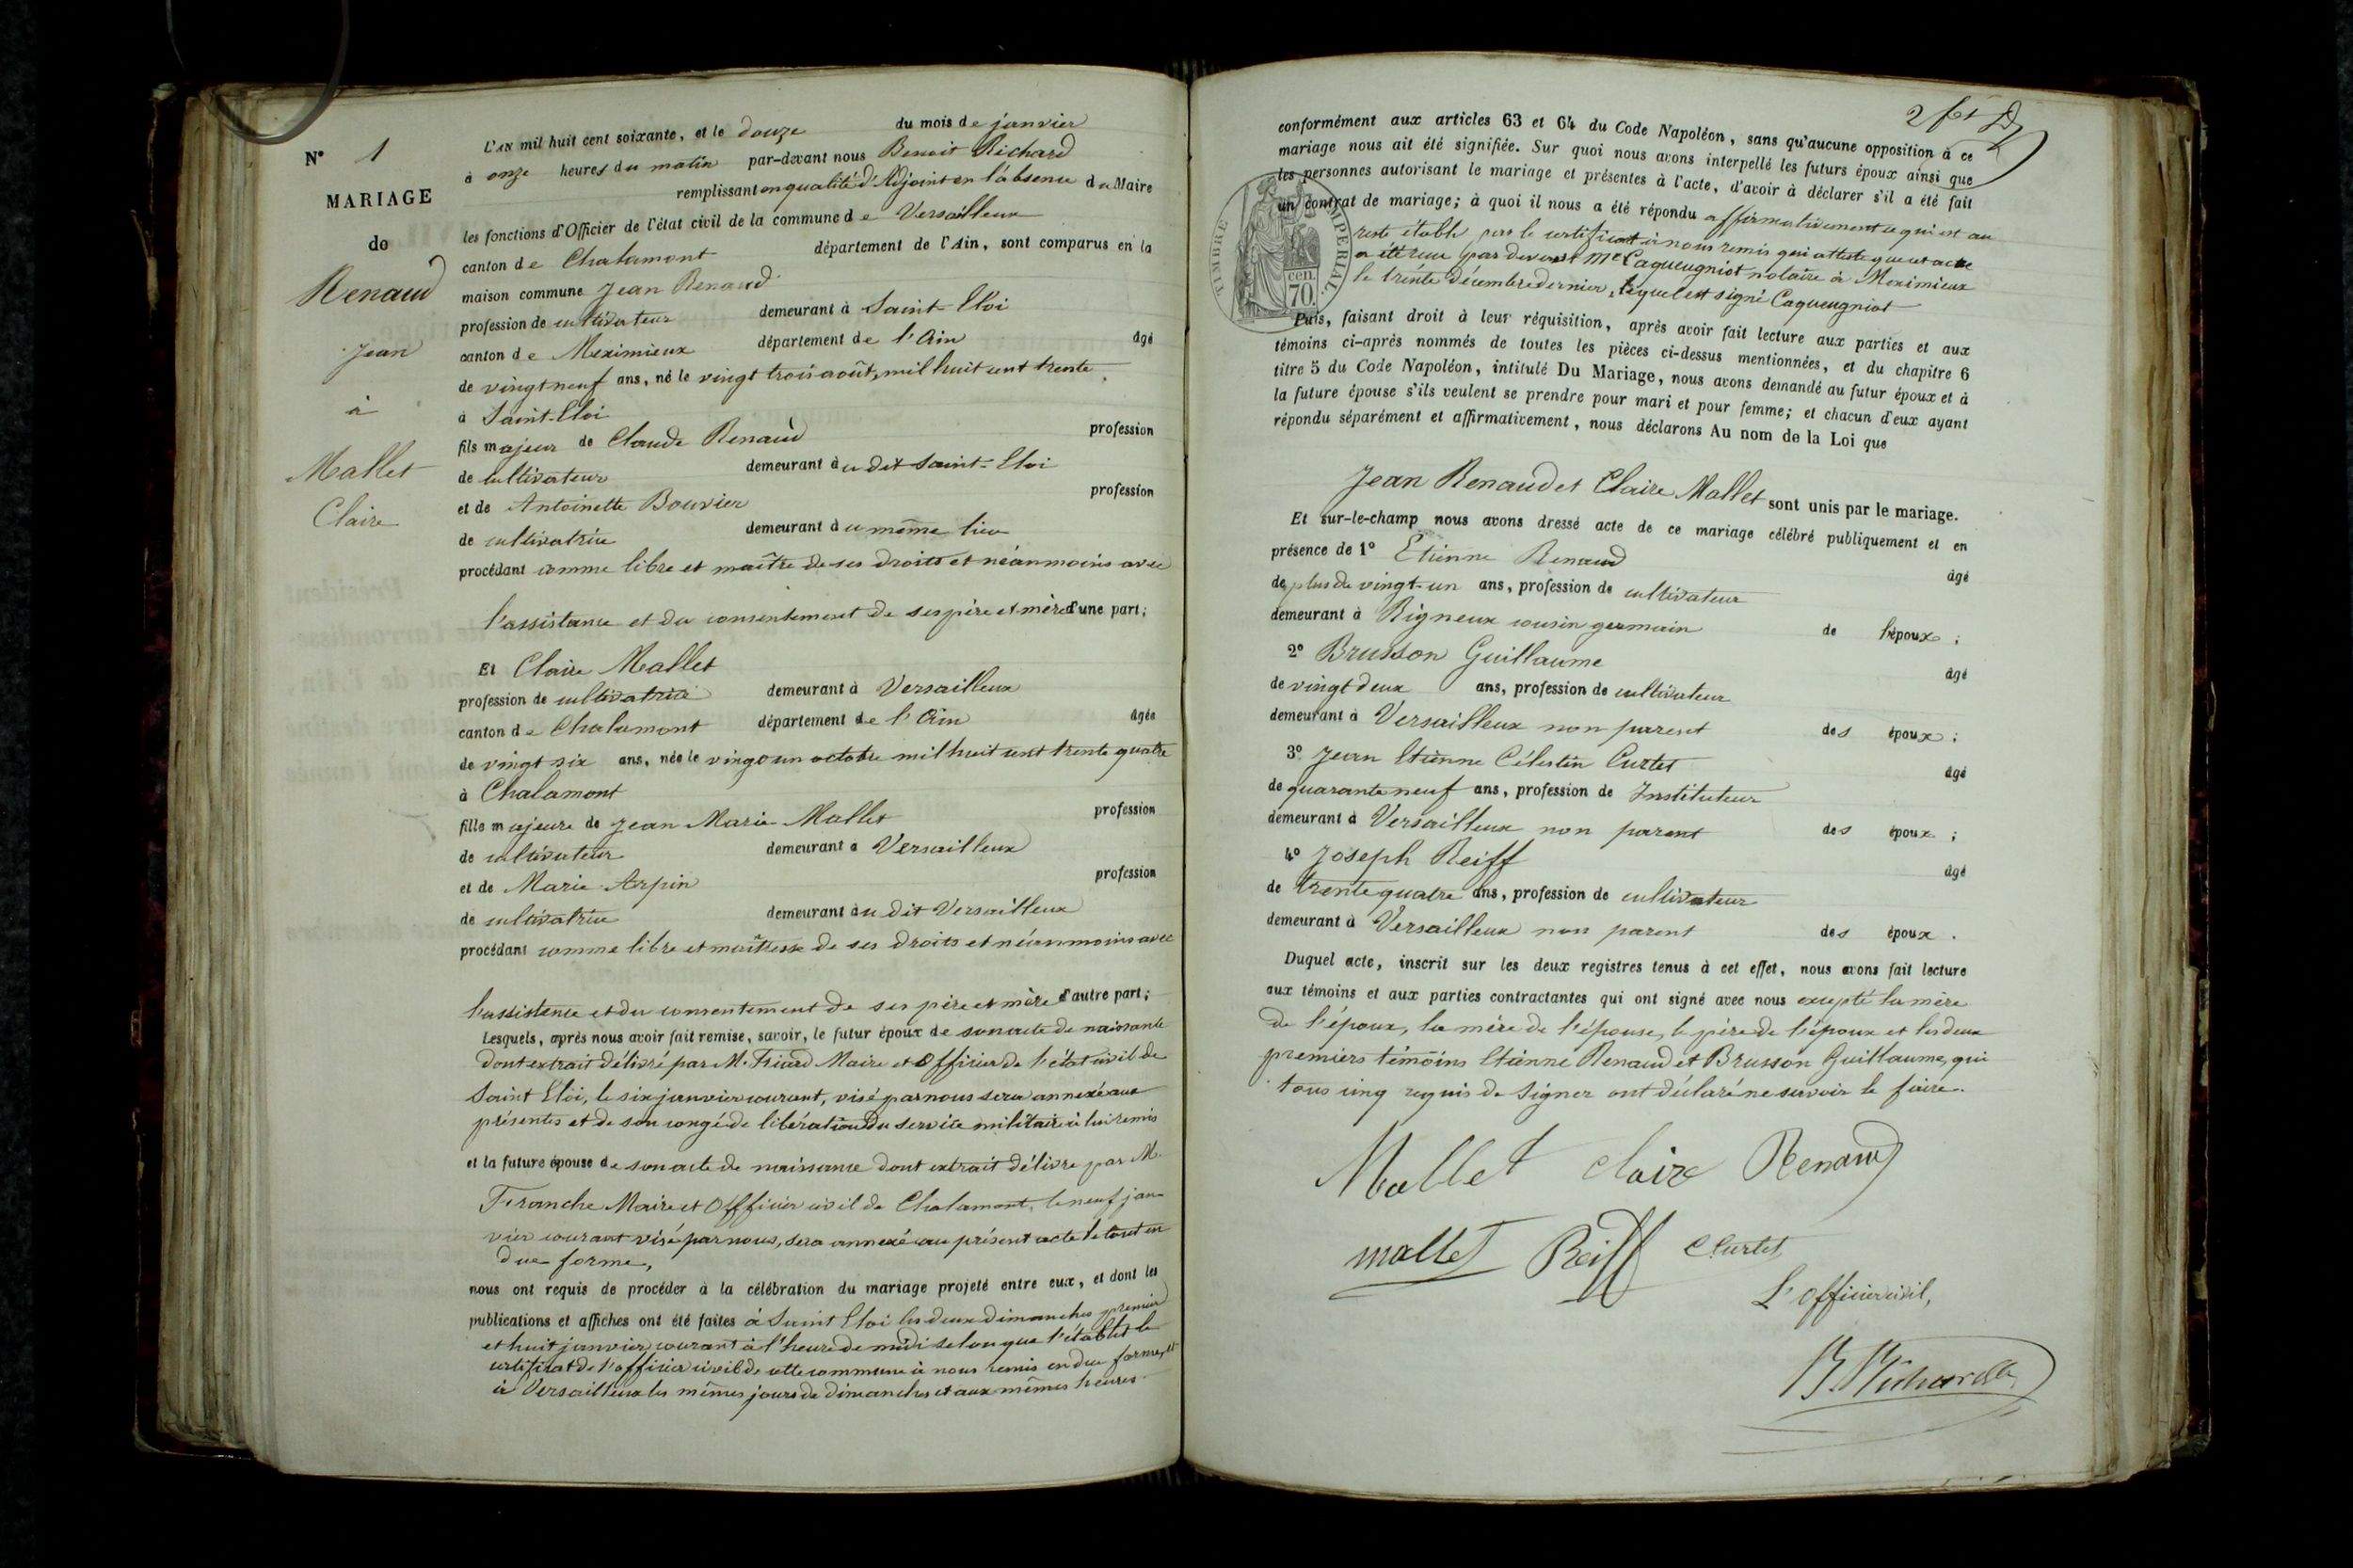 N° 1
MARIAGE
de
Renaud
Jean
à
Mallet
Claire
L'AN mil huit cent soixante, et le douze du mois de janvier
à onze heures du matin par-devant nous Benoit Richard
remplissant en qualité d'Adjoint en l'absence du Maire
les fonctions d'Officier de l'état civil de la commune de Versailleux
canton de Chalamont département de l'Ain, sont comparus en la
maison commune Jean Renaud
profession de cultivateur demeurant à Saint-Eloi
canton de Meximieux département de l'Ain âgé
de vingt neuf ans, né le vingt trois août, mil huit cent trente
à Saint-Eloi
fils majeur de Claude Renaud profession
de cultivateur demeurant au dit Saint-Eloi
et de Antoinette Bouvier profession
de cultivatrice demeurant au même lieu
procédant comme libre et maître de ses droits et néanmoins avec
l'assistance et du consentement de ses père et mère d'une part;
Et Claire Mallet
profession de cultivatrice demeurant à Versailleux
canton de Chalamont département de l'Ain âgée
de vingt six ans, née le vingt un octobre mil huit cent trente quatre
à Chalamont
fille majeure de Jean Marie Mallet profession
de cultivateur demeurant à Versailleux
et de Marie Arpin profession
de cultivatrice demeurant au dit Versailleux
procédant comme libre et maîtresse de ses droits et néanmoins avec
l'assistance et du consentement de ses père et mère d'autre part;
Lesquels, après nous avoir fait remise, savoir, le futur époux de son acte de naissance
dont extrait délivré par M. Maire et Officier de l'état civil de
Saint Eloi, le six janvier courant, visé par nous sera annexé aux
présentes et de son congé de libération du service militaire à lui remis
et la future épouse de son acte de naissance dont extrait délivré par M.
Franche Maire et Officier civil de Chalamont, le neuf jan
vier courant visé par nous, sera annexé au présent acte le tout en
due forme,
nous ont requis de procéder à la célébration du mariage projeté entre eux, et dont les
publications et affiches ont été faites à Saint Eloi les deux dimanches premier
et huit janvier courant à l'heure de midi selon que l'établit le
certificat de l'officier civil de cette commune à nous remis en due forme, et
à Versailleux les mêmes jours de dimanches et aux mêmes heures
2
conformément aux articles 63 et 64 du Code Napoléon, sans qu'aucune opposition à ce
mariage nous ait été signifiée. Sur quoi nous avons interpellé les futurs époux ainsi que
les personnes autorisant le mariage et présentes à l'acte, d'avoir à déclarer s'il a été fait
un contrat de mariage; à quoi il nous a été répondu affirmativement ce qui est au
reste établi par le certificat à nous remis qui atteste que cet acte
a été reçu par devant Me Caqueugniot notaire à Meximieux
le trente décembre dernier, lequel est signé Caqueugniot
TIMBRE IMPERIAL
cen.
70.
Puis, faisant droit à leur réquisition, après avoir fait lecture aux parties et aux
témoins ci-après nommés de toutes les pièces ci-dessus mentionnées, et du chapitre 6
titre 5 du Code Napoléon, intitulé Du Mariage, nous avons demandé au futur époux et à
la future épouse s'ils veulent se prendre pour mari et pour femme; et chacun d'eux ayant
répondu séparément et affirmativement, nous déclarons Au nom de la Loi que
Jean Renaud et Claire Mallet sont unis par le mariage.
Et sur-le-champ nous avons dressé acte de ce mariage célébré publiquement et en
présence de 1° Etienne Renaud âgé
de plus de vingt-un ans, profession de cultivateur
demeurant à Rigneux cousin germain de l'époux;
2° Brusson Guillaume âgé
de vingt deux ans, profession de cultivateur
demeurant à Versailleux non parent des époux;
3° Jean Etienne Célestin Curtet âgé
de quarante neuf ans, profession de Instituteur
demeurant à Versailleux non parent des époux;
4° Joseph Reiff âgé
de trente quatre ans, profession de cultivateur
demeurant à Versailleux non parent des époux.
Duquel acte, inscrit sur les deux registres tenus à cet effet, nous avons fait lecture
aux témoins et aux parties contractantes qui ont signé avec nous excepté la mère
de l'époux, la mère de l'épouse, le père de l'époux et les deux
premiers témoins Etienne Renaud et Brusson Guillaume, qui
tous cinq requis de signer ont déclaré ne savoir le faire.
Mallet Claire Renaud
mallet Reiff Curtet
L'officier civil,
B. Richard